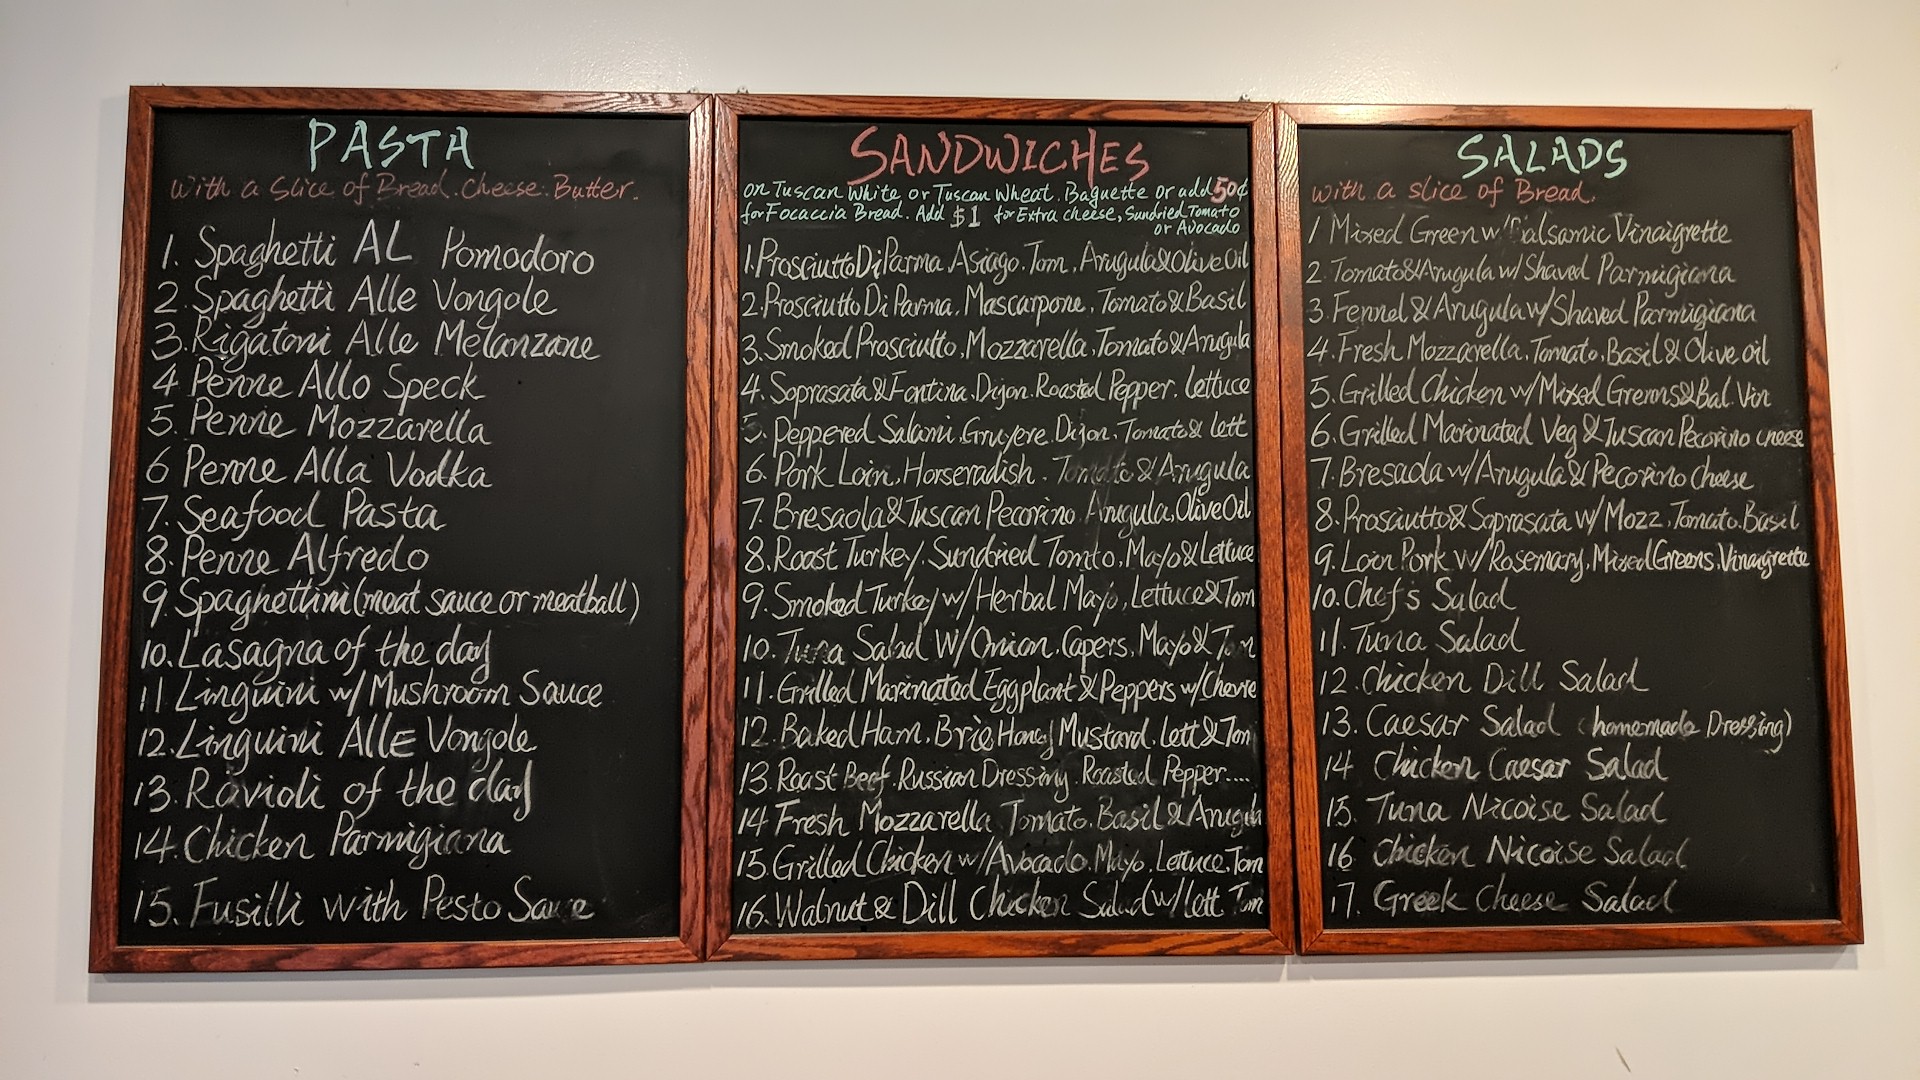 PASTA
with a Slice of Bread. Cheese. Butter.
1. Spaghetti AL Pomodoro
2. Spaghetti Alle Vongole
3. Rigatoni Alle Melanzane
4 Penne Allo Speck
5. Penne Mozzarella
6 Penne Alla Vodka
7. Seafood Pasta
8. Penne Alfredo
9. Spaghettini (meat sauce or meatball)
10. Lasagna of the day
11 Linguini w/ Mushroom Sauce
12. Linguini AllE Vongole
13. Ravioli of the day
14. Chicken Parmigiana
15. Fusilli with Pesto Sauce
SANDWICHES
on Tuscan White or Tuscan Wheat. Baguette or add 50¢
for Focaccia Bread. Add $1 for Extra cheese, Sundried Tomato
or Avocado
1. Prosciutto Di Parma Asiago. Tom, Arugula & Olive Oil
2. Prosciutto Di Parma, Mascarpone, Tomato & Basil
3. Smoked Prosciutto, Mozzarella, Tomato & Arugula
4. Soprasata & Fontina, Dijon. Roasted Pepper. Lettuce
5. Peppered Salami, Gruyere. Dijon, Tomato & lett
6. Pork Loin, Horseradish. Tomato & Arugula
7. Bresaola & Tuscan Pecorino. Arugula, Olive Oil
8. Roast Turkey, Sundried Tomto, Mayo & Lettuce
9. Smoked Turkey w/ Herbal Mayo, Lettuce & Tom
10. Tuna Salad W/ Onion, Capers, Mayo & Tom
11. Grilled Marinated Eggplant & Peppers w/ Chevre
12. Baked Ham, Brie Honey Mustard, Lett & Tom
13. Roast Beef. Russian Dressing. Roasted Pepper....
14 Fresh Mozzarella, Tomato. Basil & Arugula
15. Grilled Chicken w/ Avocado. Mayo, Lettuce, Tom
16. Walnut & Dill Chicken Salad w/ lett Tom
SALADS
with a slice of Bread.
1 Mixed Green w/ Balsamic Vinaigrette
2. Tomato & Arugula w/ Shaved Parmigiana
3. Fennel & Arugula w/ Shaved Parmigiana
4. Fresh Mozzarella, Tomato, Basil & Olive oil
5. Grilled Chicken w/ Mixed Greens & Bal Vin
6. Grilled Marinated Veg & Tuscan Pecorino cheese
7. Bresaola w/ Arugula & Pecorino cheese
8. Prosciutto & Soprasata w/ Mozz, Tomato. Basil
9. Loin Pork w/ Rosemary, Mixed Greens, Vinaigrette
10. Chef's Salad
11. Tuna Salad
12. Chicken Dill Salad
13. Caesar Salad (homemade Dressing)
14 Chicken Caesar Salad
15. Tuna Nicoise Salad
16 Chicken Nicoise Salad
17. Greek Cheese Salad